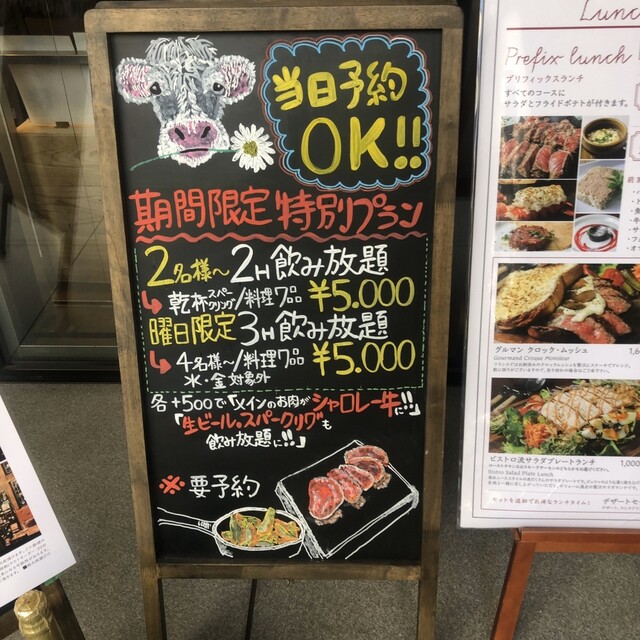 当日予約
OK!!
期間限定 特別プラン
2名様〜 2H飲み放題
乾杯スパークリング/料理7品 ¥5.000
曜日限定 3H飲み放題
4名様〜/料理7品 ¥5.000
水・金 対象外
各+500で「メインのお肉がシャロレー牛に!!」
「生ビール。スパークリグも
飲み放題に!!」
※要予約
Lunc
Prefix lunch
プリフィックスランチ
すべてのコースに
サラダとフライドポテトが付きます。
グルマン クロック・ムッシュ
Gourmand Croque Monsieur
ビストロ流サラダプレートランチ
1,000
Bistro Salad Plate Lunch
セットを追加でお得なランチタイム!